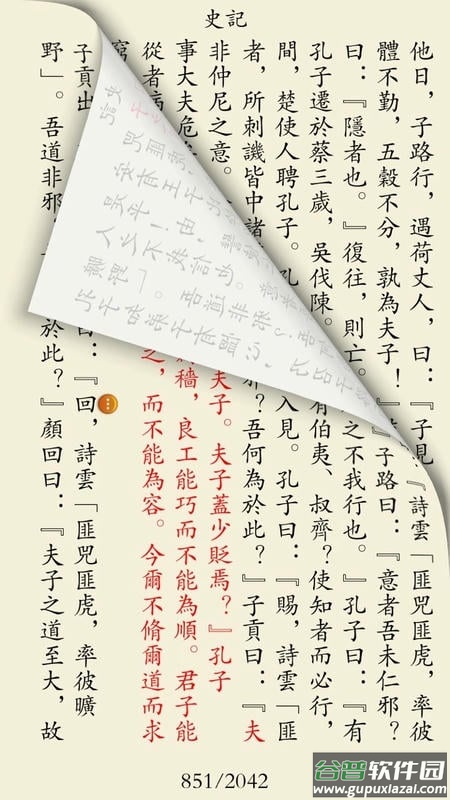 史記
他日，子路行，遇荷丈人，曰：『子見
詩雲「匪兕匪虎，率彼
體不勤，五穀不分，孰為夫子！
』子路曰：『意者吾未仁邪？
曰：『隱者也。』復往，則亡。
之不我行也。』孔子曰：『有
孔子遷於蔡三歲，吳伐陳。
有伯夷、叔齊？使知者而必行，
間，楚使人聘孔子。孔
入見。孔子曰：『賜，詩雲「匪
者，所刺譏皆中諸
邪？吾何為於此？』子貢曰：『夫
非仲尼之意。今
夫子。夫子蓋少貶焉？』孔子
事大夫危
穡，良工能巧而不能為順。君子能
從者病
之，而不能為容。今爾不脩爾道而求
子貢出
曰：『回，詩雲「匪兕匪虎，率彼曠
野」。吾道非邪
於此？』顏回曰：『夫子之道至大，故
851/2042
谷普软件园
www.gupuxiazai.com